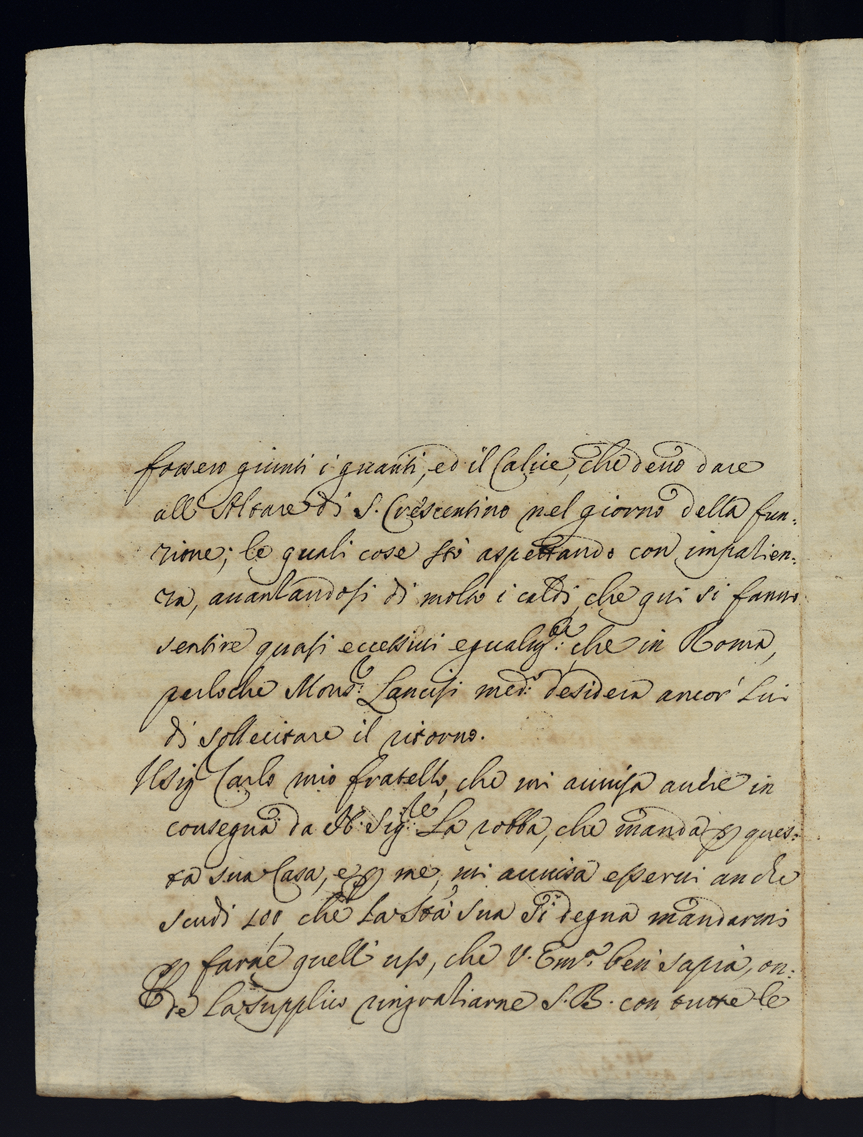 fossero giunti i guanti, ed il Calice, che devo dare
all'Altare di S. Crescentino nel giorno della fun:
zione; le quali cose stò aspettando con impatien:
za, avantandosi di molto i caldi, che qui si fanno
sentire quasi eccessivi egualm:te che in Roma,
perloche Mons.r Lancisi med.o desidera ancor' Lui
di sollecitare il ritorno.
Il Sig.r Carlo mio fratello, che mi avvisa avere in
consegna da N. Sig.re La robba, che manda p ques:
ta sua Casa, e p me, mi avvisa esservi anche
scudi 400, che La Stà Sua si degna mandarmi
p farne quell'uso, che V. Em.a ben saprà, on:
de La supplico ringratiarne S. B. con tutte le